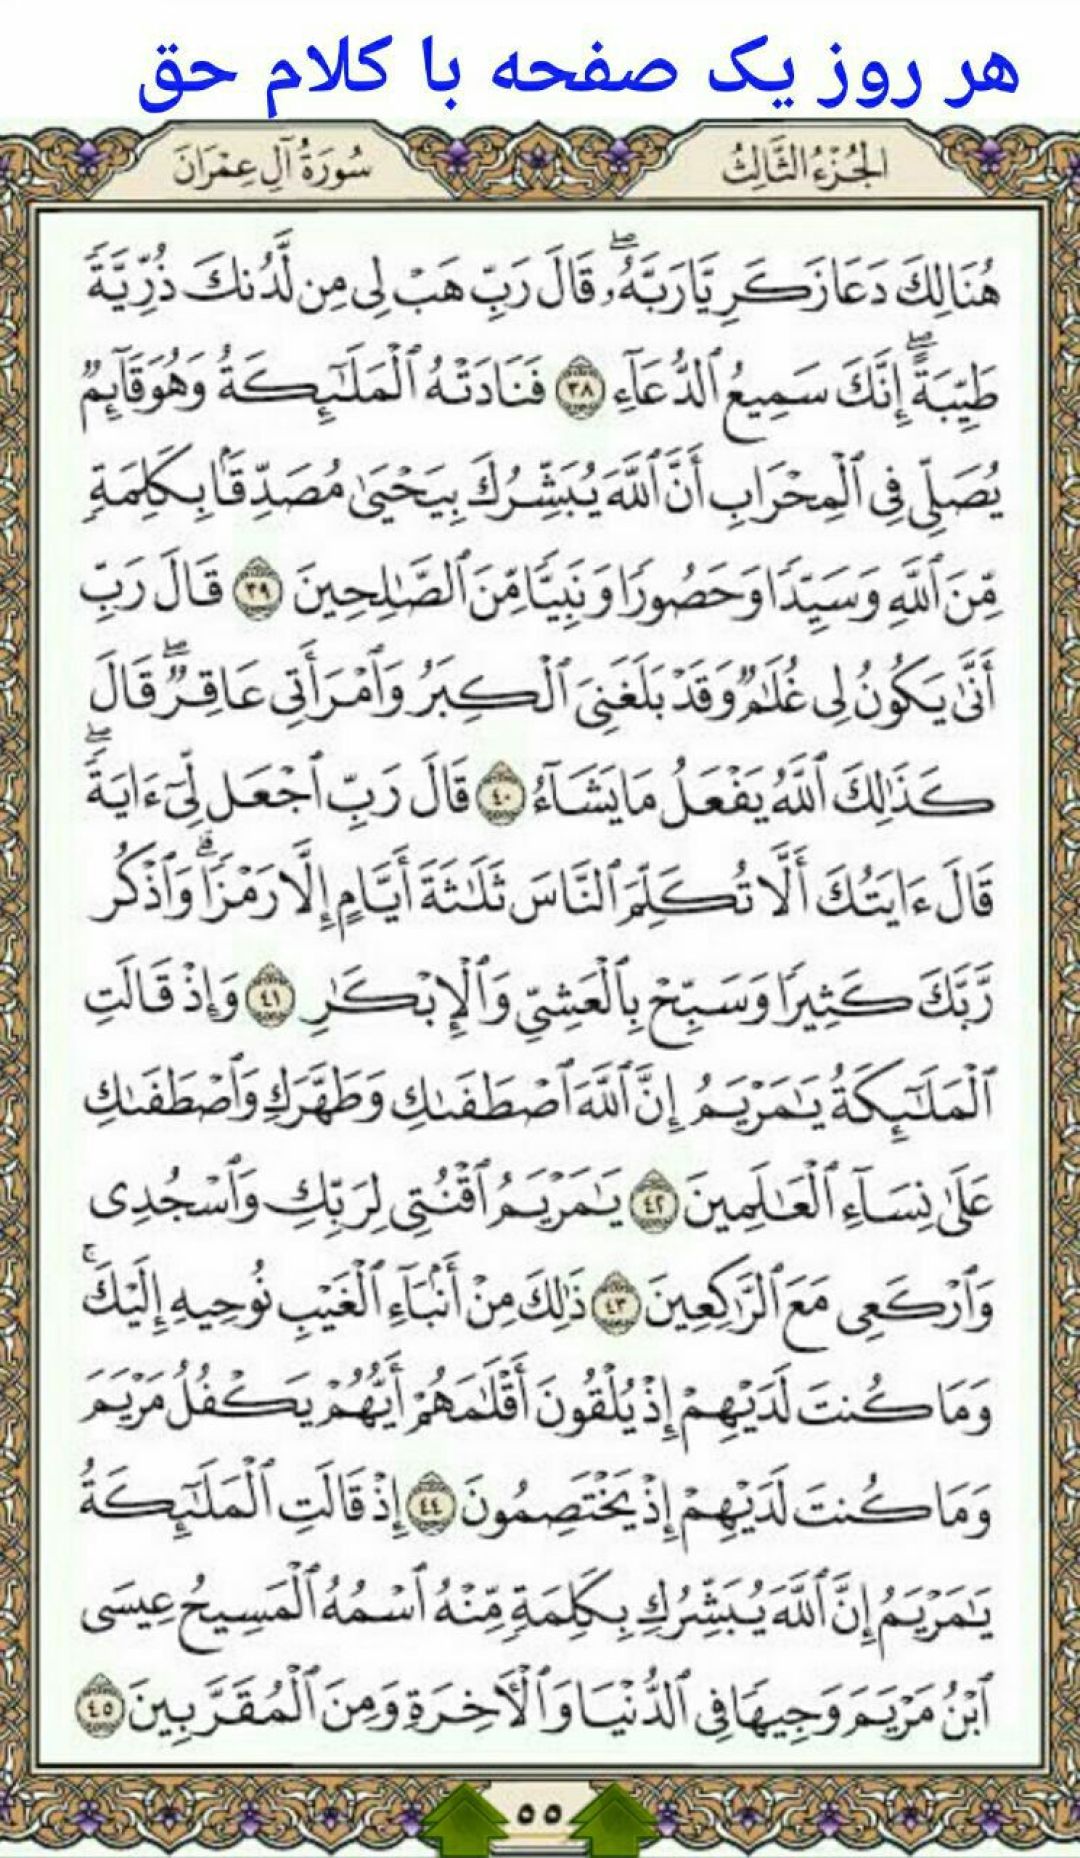 هر روز یک صفحه با کلام حق
الجُزْءُ الثَّالِثُ
سُورَةُ آلِ عِمْرَانَ
هُنَالِكَ دَعَا زَكَرِيَّا رَبَّهُۥۖ قَالَ رَبِّ هَبْ لِى مِن لَّدُنكَ ذُرِّيَّةً
طَيِّبَةًۖ إِنَّكَ سَمِيعُ ٱلدُّعَآءِ ٣٨ فَنَادَتْهُ ٱلْمَلَٰٓئِكَةُ وَهُوَ قَآئِمٌ
يُصَلِّى فِى ٱلْمِحْرَابِ أَنَّ ٱللَّهَ يُبَشِّرُكَ بِيَحْيَىٰ مُصَدِّقًۢا بِكَلِمَةٍ
مِّنَ ٱللَّهِ وَسَيِّدًا وَحَصُورًا وَنَبِيًّا مِّنَ ٱلصَّٰلِحِينَ ٣٩ قَالَ رَبِّ
أَنَّىٰ يَكُونُ لِى غُلَٰمٌ وَقَدْ بَلَغَنِىَ ٱلْكِبَرُ وَٱمْرَأَتِى عَاقِرٌۖ قَالَ
كَذَٰلِكَ ٱللَّهُ يَفْعَلُ مَا يَشَآءُ ٤٠ قَالَ رَبِّ ٱجْعَل لِّىٓ ءَايَةًۖ
قَالَ ءَايَتُكَ أَلَّا تُكَلِّمَ ٱلنَّاسَ ثَلَٰثَةَ أَيَّامٍ إِلَّا رَمْزًاۗ وَٱذْكُر
رَّبَّكَ كَثِيرًا وَسَبِّحْ بِٱلْعَشِىِّ وَٱلْإِبْكَٰرِ ٤١ وَإِذْ قَالَتِ
ٱلْمَلَٰٓئِكَةُ يَٰمَرْيَمُ إِنَّ ٱللَّهَ ٱصْطَفَىٰكِ وَطَهَّرَكِ وَٱصْطَفَىٰكِ
عَلَىٰ نِسَآءِ ٱلْعَٰلَمِينَ ٤٢ يَٰمَرْيَمُ ٱقْنُتِى لِرَبِّكِ وَٱسْجُدِى
وَٱرْكَعِى مَعَ ٱلرَّٰكِعِينَ ٤٣ ذَٰلِكَ مِنْ أَنۢبَآءِ ٱلْغَيْبِ نُوحِيهِ إِلَيْكَۚ
وَمَا كُنتَ لَدَيْهِمْ إِذْ يُلْقُونَ أَقْلَٰمَهُمْ أَيُّهُمْ يَكْفُلُ مَرْيَمَ
وَمَا كُنتَ لَدَيْهِمْ إِذْ يَخْتَصِمُونَ ٤٤ إِذْ قَالَتِ ٱلْمَلَٰٓئِكَةُ
يَٰمَرْيَمُ إِنَّ ٱللَّهَ يُبَشِّرُكِ بِكَلِمَةٍ مِّنْهُ ٱسْمُهُ ٱلْمَسِيحُ عِيسَى
ٱبْنُ مَرْيَمَ وَجِيهًا فِى ٱلدُّنْيَا وَٱلْءَاخِرَةِ وَمِنَ ٱلْمُقَرَّبِينَ ٤٥
٥٥